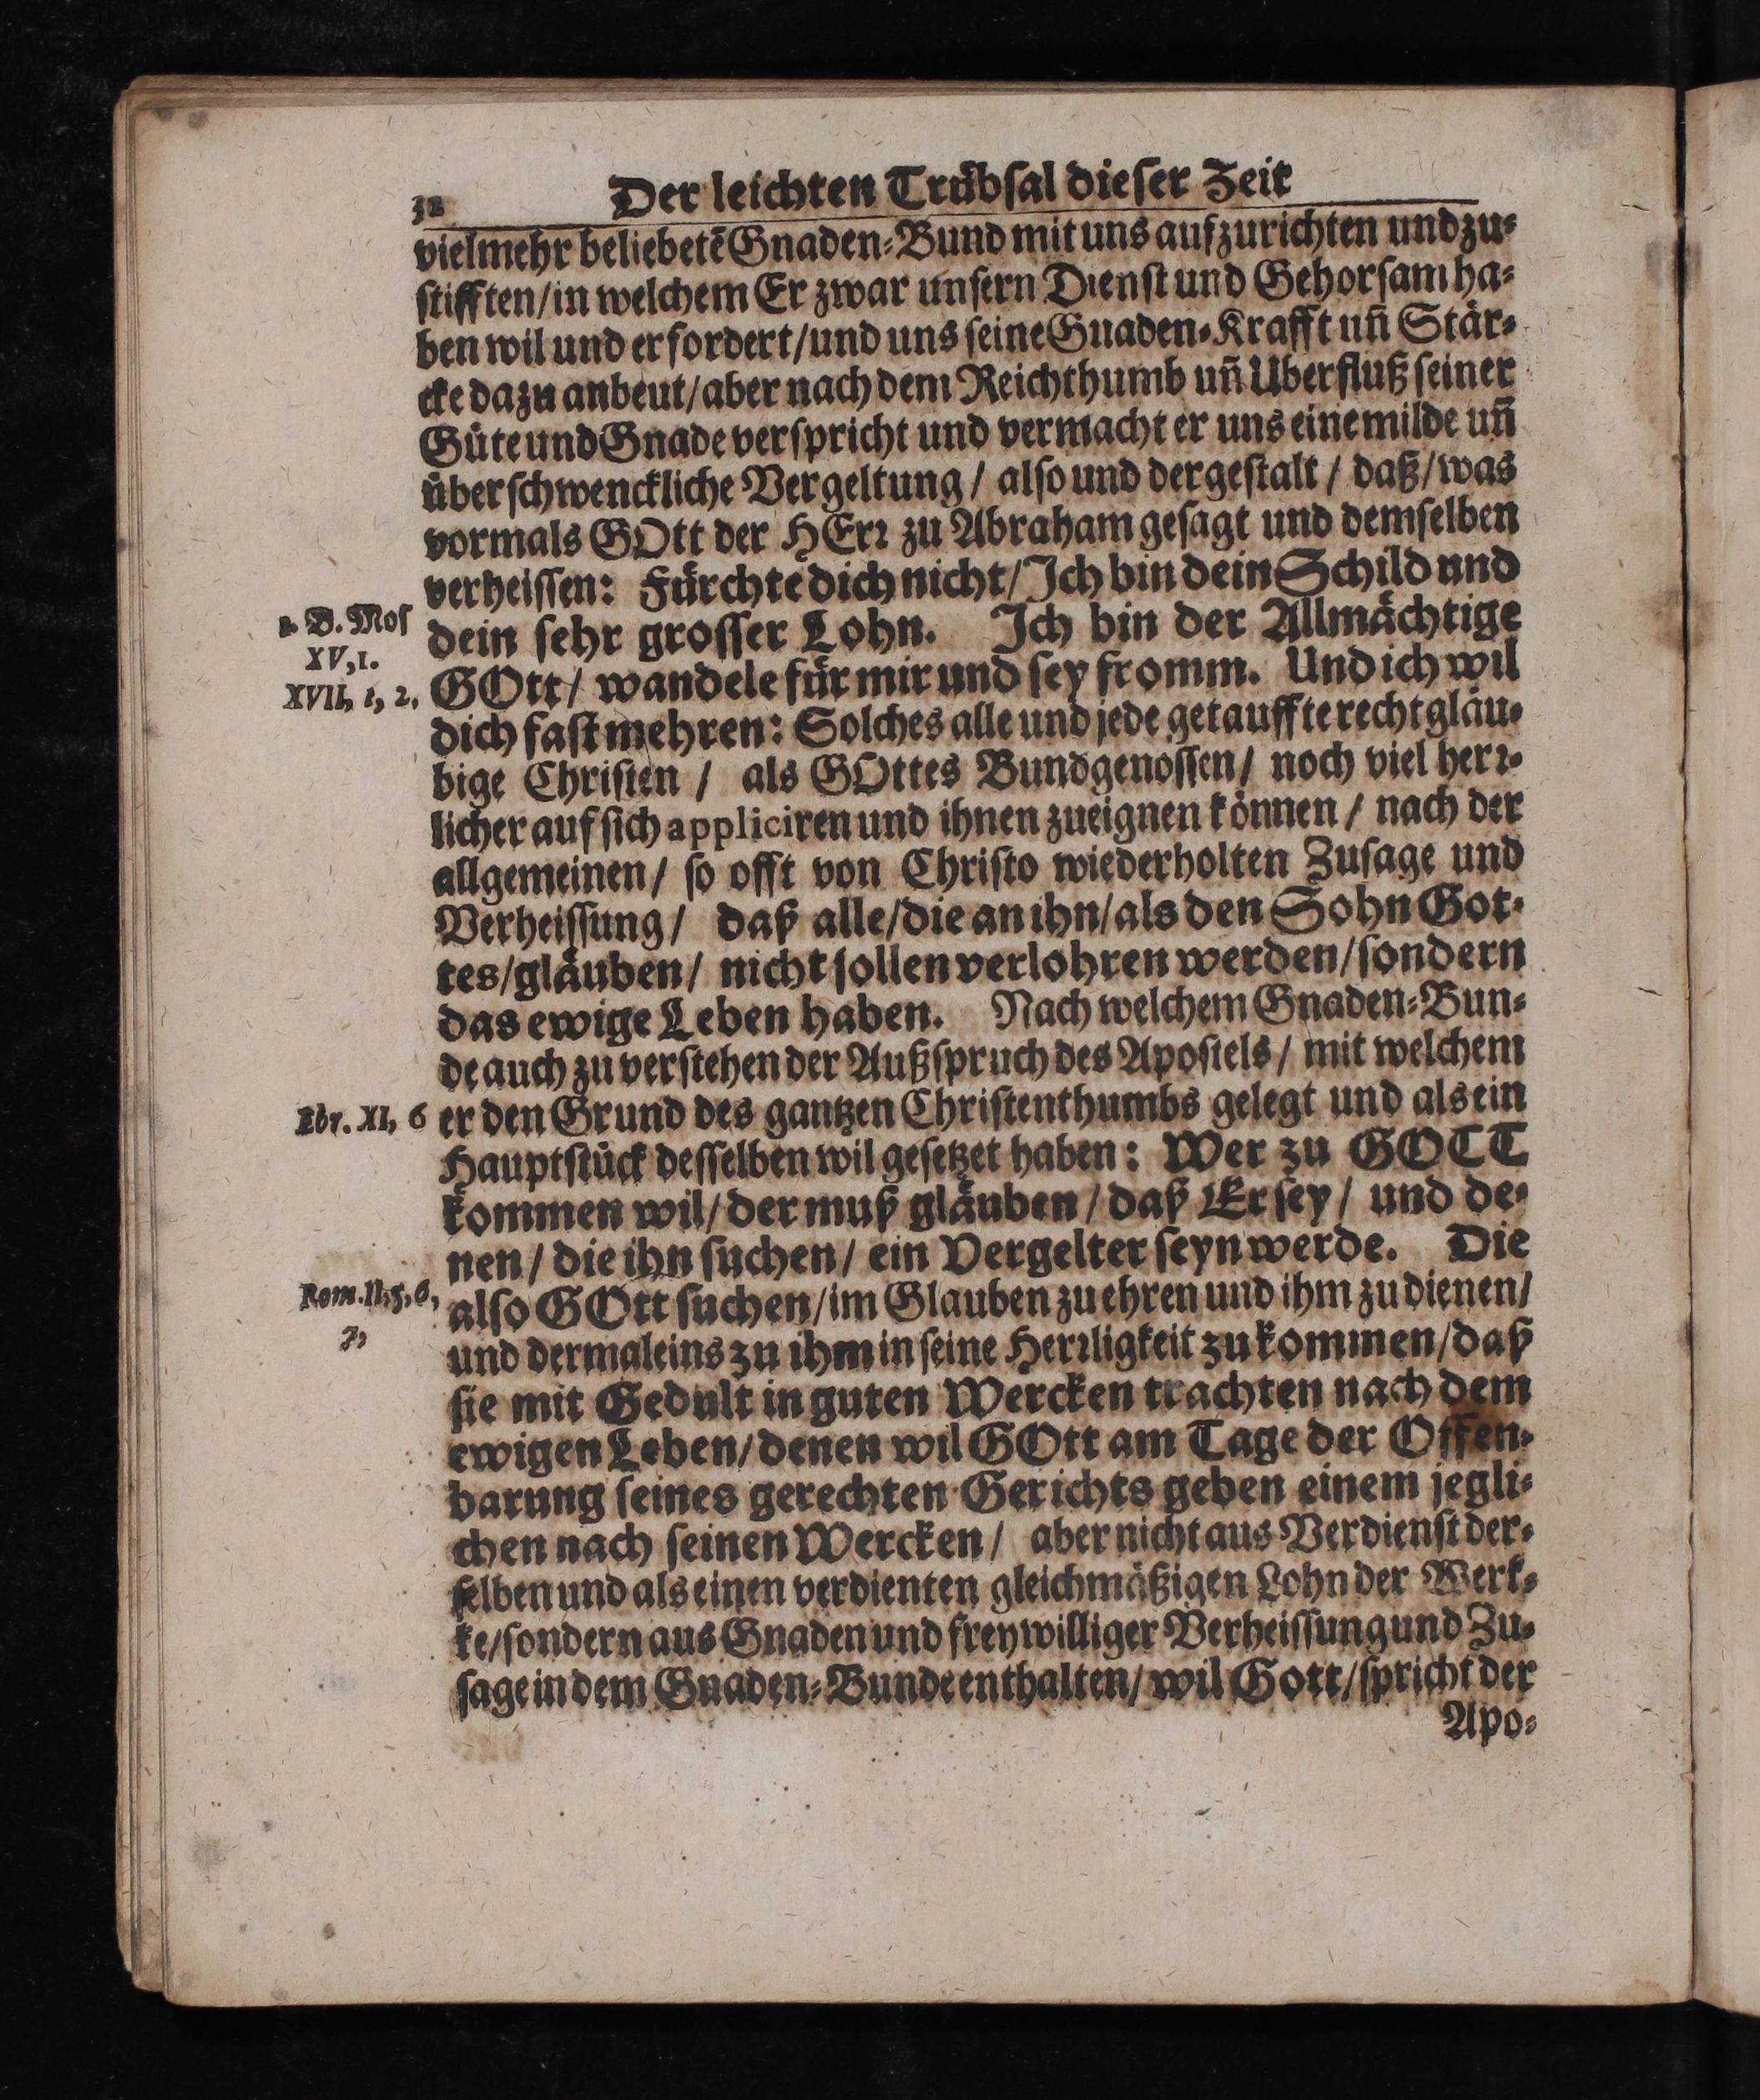 32 Der leichten Trübsal dieser Zeit
vielmehr beliebetē Gnaden-Bund mit uns aufzurichten und zu-
stifften/ in welchem Er zwar unsern Dienst und Gehorsam ha-
ben wil und erfordert/ und uns seine Gnaden-Krafft uñ Stär-
cke dazu anbeut/ aber nach dem Reichthumb uñ Uberfluß seiner
Güte und Gnade verspricht und vermacht er uns eine milde uñ
überschwenckliche Vergeltung/ also und dergestalt/ daß/ was
vormals GOtt der HErꝛ zu Abraham gesagt und demselben
verheissen: Fürchte dich nicht/ Ich bin dein Schild und
1. B. Mos
dein sehr grosser Lohn. Ich bin der Allmächtige
XV, 1.
XVII, 1, 2.
GOtt/ wandele für mir und sey fromm. Und ich wil
dich fast mehren: Solches alle und jede getauffte rechtgläu-
bige Christen/ als GOttes Bundgenossen/ noch viel herꝛ-
licher auf sich appliciren und ihnen zueignen können/ nach der
allgemeinen/ so offt von Christo wiederholten Zusage und
Verheissung/ daß alle/ die an ihn/ als den Sohn Got-
tes/ gläuben/ nicht sollen verlohren werden/ sondern
das ewige Leben haben. Nach welchem Gnaden-Bun-
de auch zu verstehen der Außspruch des Apostels/ mit welchem
Ebr. XI, 6
er den Grund des gantzen Christenthumbs gelegt und als ein
Hauptstück desselben wil gesetzet haben: Wer zu GOTT
kommen wil/ der muß gläuben/ daß Er sey/ und de-
nen/ die ihn suchen/ ein Vergelter seyn werde. Die
Rom. II, 5, 6,
7,
also GOtt suchen/ im Glauben zu ehren und ihm zu dienen/
und dermaleins zu ihm in seine Herꝛligkeit zu kommen/ daß
sie mit Gedult in guten Wercken trachten nach dem
ewigen Leben/ denen wil GOtt am Tage der Offen-
barung seines gerechten Gerichts geben einem jegli-
chen nach seinen Wercken/ aber nicht aus Verdienst der-
selben und als einen verdienten gleichmäßigen Lohn der Werk-
ke/ sondern aus Gnaden und freywilliger Verheissung und Zu-
sage in dem Gnaden-Bunde enthalten/ wil Gott/ spricht der
Apo-